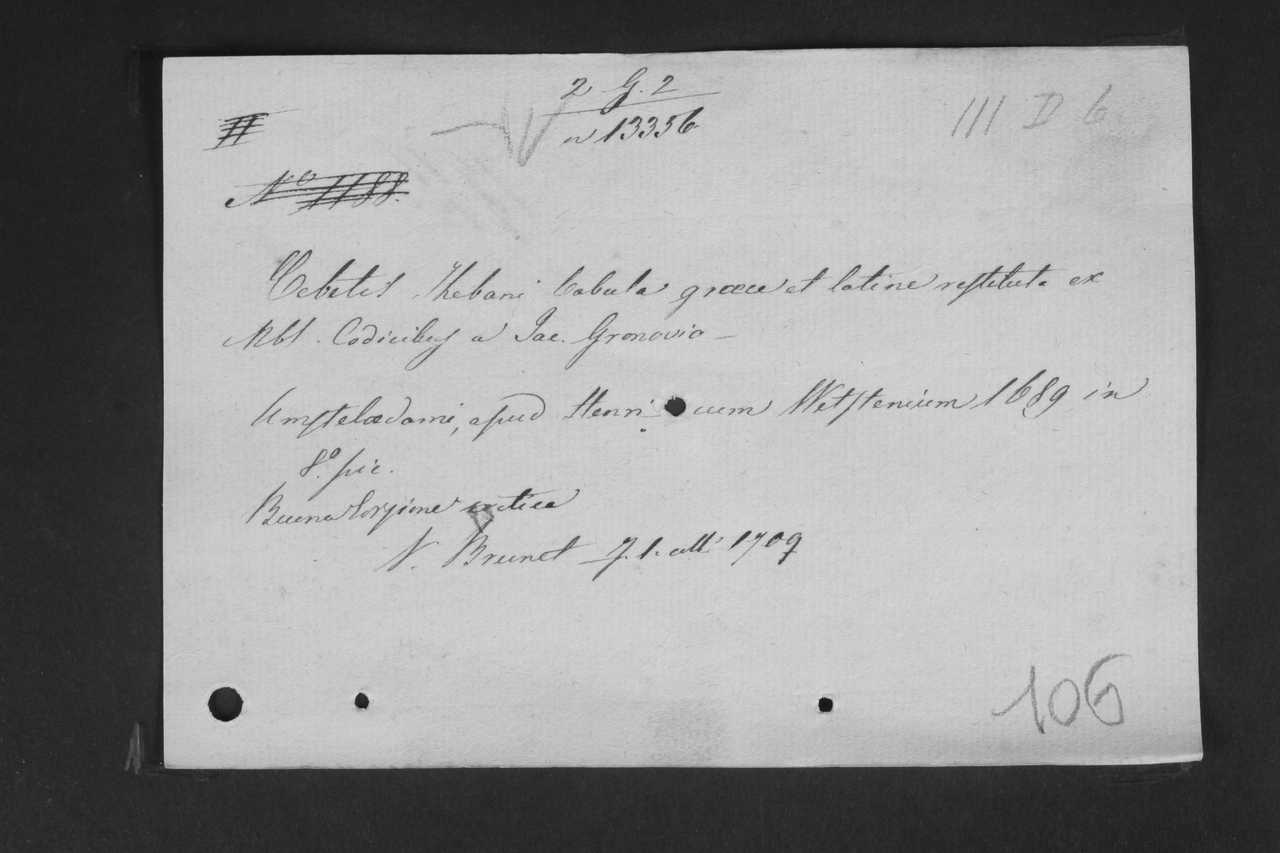 2 G. 2
n 13356
III D 6
II
No 1188.
Cebetis Thebani Tabula graece et latine restituta ex
Mst. Codicibus a Jac. Gronovio —
Amstelaedami, apud Henricum Wetstenium 1689 in
8.º pic.
Buona Versione critica
V. Brunet T. 1. all. 1709
106